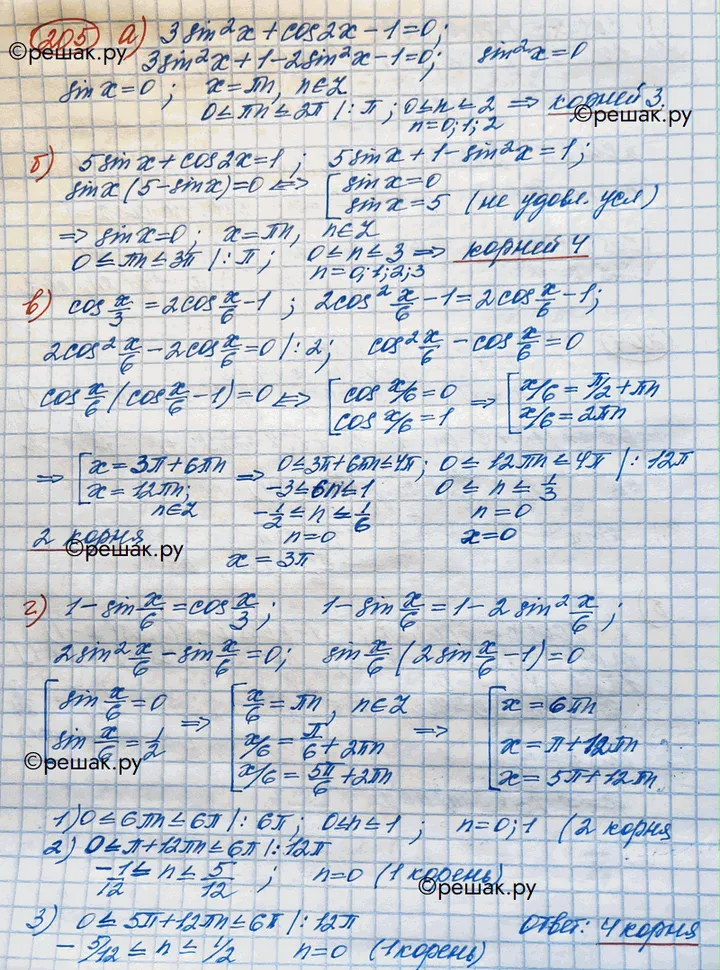 205 а) 3sin²x + cos2x − 1 = 0;
©решак.ру
3sin²x + 1 − 2sin²x − 1 = 0; sin²x = 0
sinx = 0; x = πn, n∈Z
0 ≤ πn ≤ 2π |: π; 0 ≤ n ≤ 2 ⇒ корней 3.
n = 0; 1; 2
©решак.ру
б) 5sinx + cos2x = 1; 5sinx + 1 − sin²x = 1;
sinx(5 − sinx) = 0 ⇔ [ sinx = 0
sinx = 5 (не удовл. усл)
⇒ sinx = 0; x = πn, n∈Z
0 ≤ πn ≤ 3π |: π; 0 ≤ n ≤ 3 ⇒ корней 4
n = 0; 1; 2; 3
в) cos x/3 = 2cos x/6 − 1; 2cos² x/6 − 1 = 2cos x/6 − 1;
2cos² x/6 − 2cos x/6 = 0 |: 2; cos² x/6 − cos x/6 = 0
cos x/6 (cos x/6 − 1) = 0 ⇔ [ cos x/6 = 0 ⇒ [ x/6 = π/2 + πn
cos x/6 = 1 x/6 = 2πn
⇒ [ x = 3π + 6πn ⇒ 0 ≤ 3π + 6πn ≤ 4π; 0 ≤ 12πn ≤ 4π |: 12π
x = 12πn; −3 ≤ 6n ≤ 1 0 ≤ n ≤ 1/3
n∈Z −1/2 ≤ n ≤ 1/6 n = 0
2 корня n = 0 x = 0
©решак.ру
x = 3π
г) 1 − sin x/6 = cos x/3; 1 − sin x/6 = 1 − 2sin² x/6;
2sin² x/6 − sin x/6 = 0; sin x/6 (2sin x/6 − 1) = 0
[ sin x/6 = 0 ⇒ [ x/6 = πn, n∈Z ⇒ [ x = 6πn
sin x/6 = 1/2 x/6 = π/6 + 2πn x = π + 12πn
x/6 = 5π/6 + 2πn x = 5π + 12πn
©решак.ру
1) 0 ≤ 6πn ≤ 6π |: 6π; 0 ≤ n ≤ 1; n = 0; 1 (2 корня
2) 0 ≤ π + 12πn ≤ 6π |: 12π
−1/12 ≤ n ≤ 5/12; n = 0 (1 корень)
©решак.ру
3) 0 ≤ 5π + 12πn ≤ 6π |: 12π Ответ: 4 корня
−5/12 ≤ n ≤ 1/2 n = 0 (1 корень)